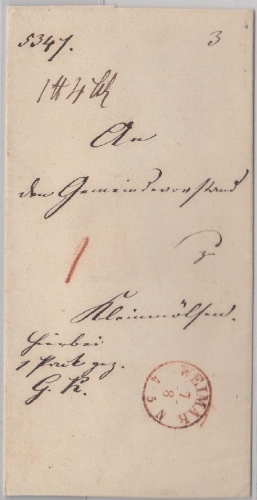 5347.
3
1 ℔ 4 Lth
An
den Gemeindevorstand
zu
Kleinmölsen.
Hierbei
1 Pack gez.
G. K.
WEIMAR
7
8
N 4-5